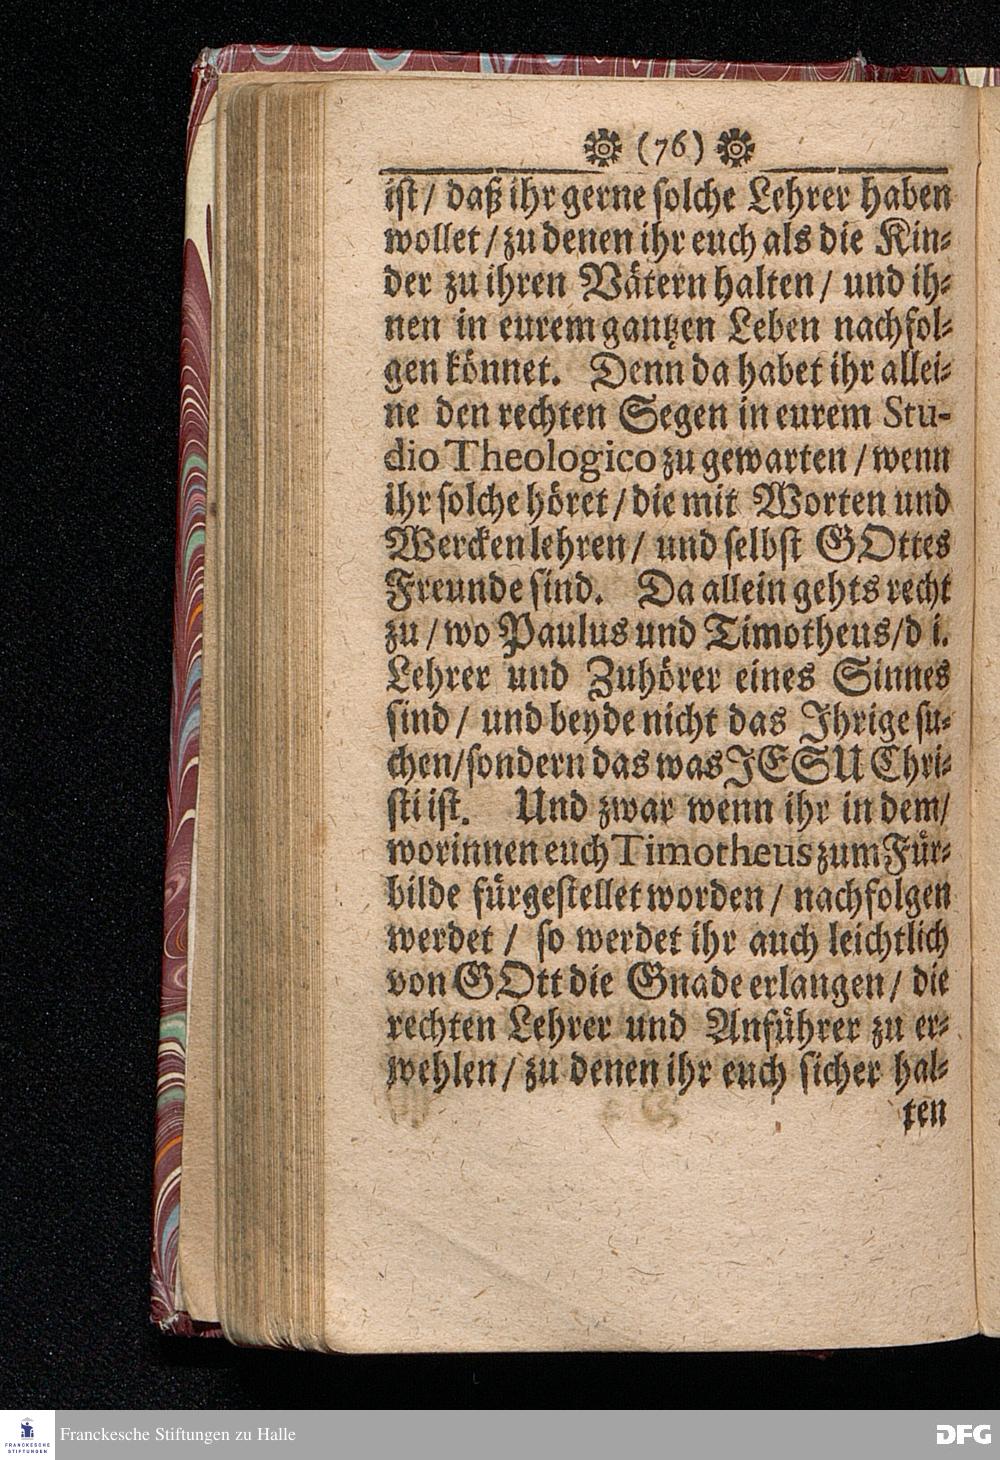 (76)
ist / daß ihr gerne solche Lehrer haben
wollet / zu denen ihr euch als die Kin-
der zu ihren Vätern halten / und ih-
nen in eurem gantzen Leben nachfol-
gen könnet. Denn da habet ihr allei-
ne den rechten Segen in eurem Stu-
dio Theologico zu gewarten / wenn
ihr solche höret / die mit Worten und
Wercken lehren / und selbst GOttes
Freunde sind. Da allein gehts recht
zu / wo Paulus und Timotheus / d i.
Lehrer und Zuhörer eines Sinnes
sind / und beyde nicht das Ihrige su-
chen / sondern das was JESU Chri-
sti ist. Und zwar wenn ihr in dem /
worinnen euch Timotheus zum Für-
bilde fürgestellet worden / nachfolgen
werdet / so werdet ihr auch leichtlich
von GOtt die Gnade erlangen / die
rechten Lehrer und Anführer zu er-
wehlen / zu denen ihr euch sicher hal-
ten
FRANCKESCHE
STIFTUNGEN
Franckesche Stiftungen zu Halle
DFG